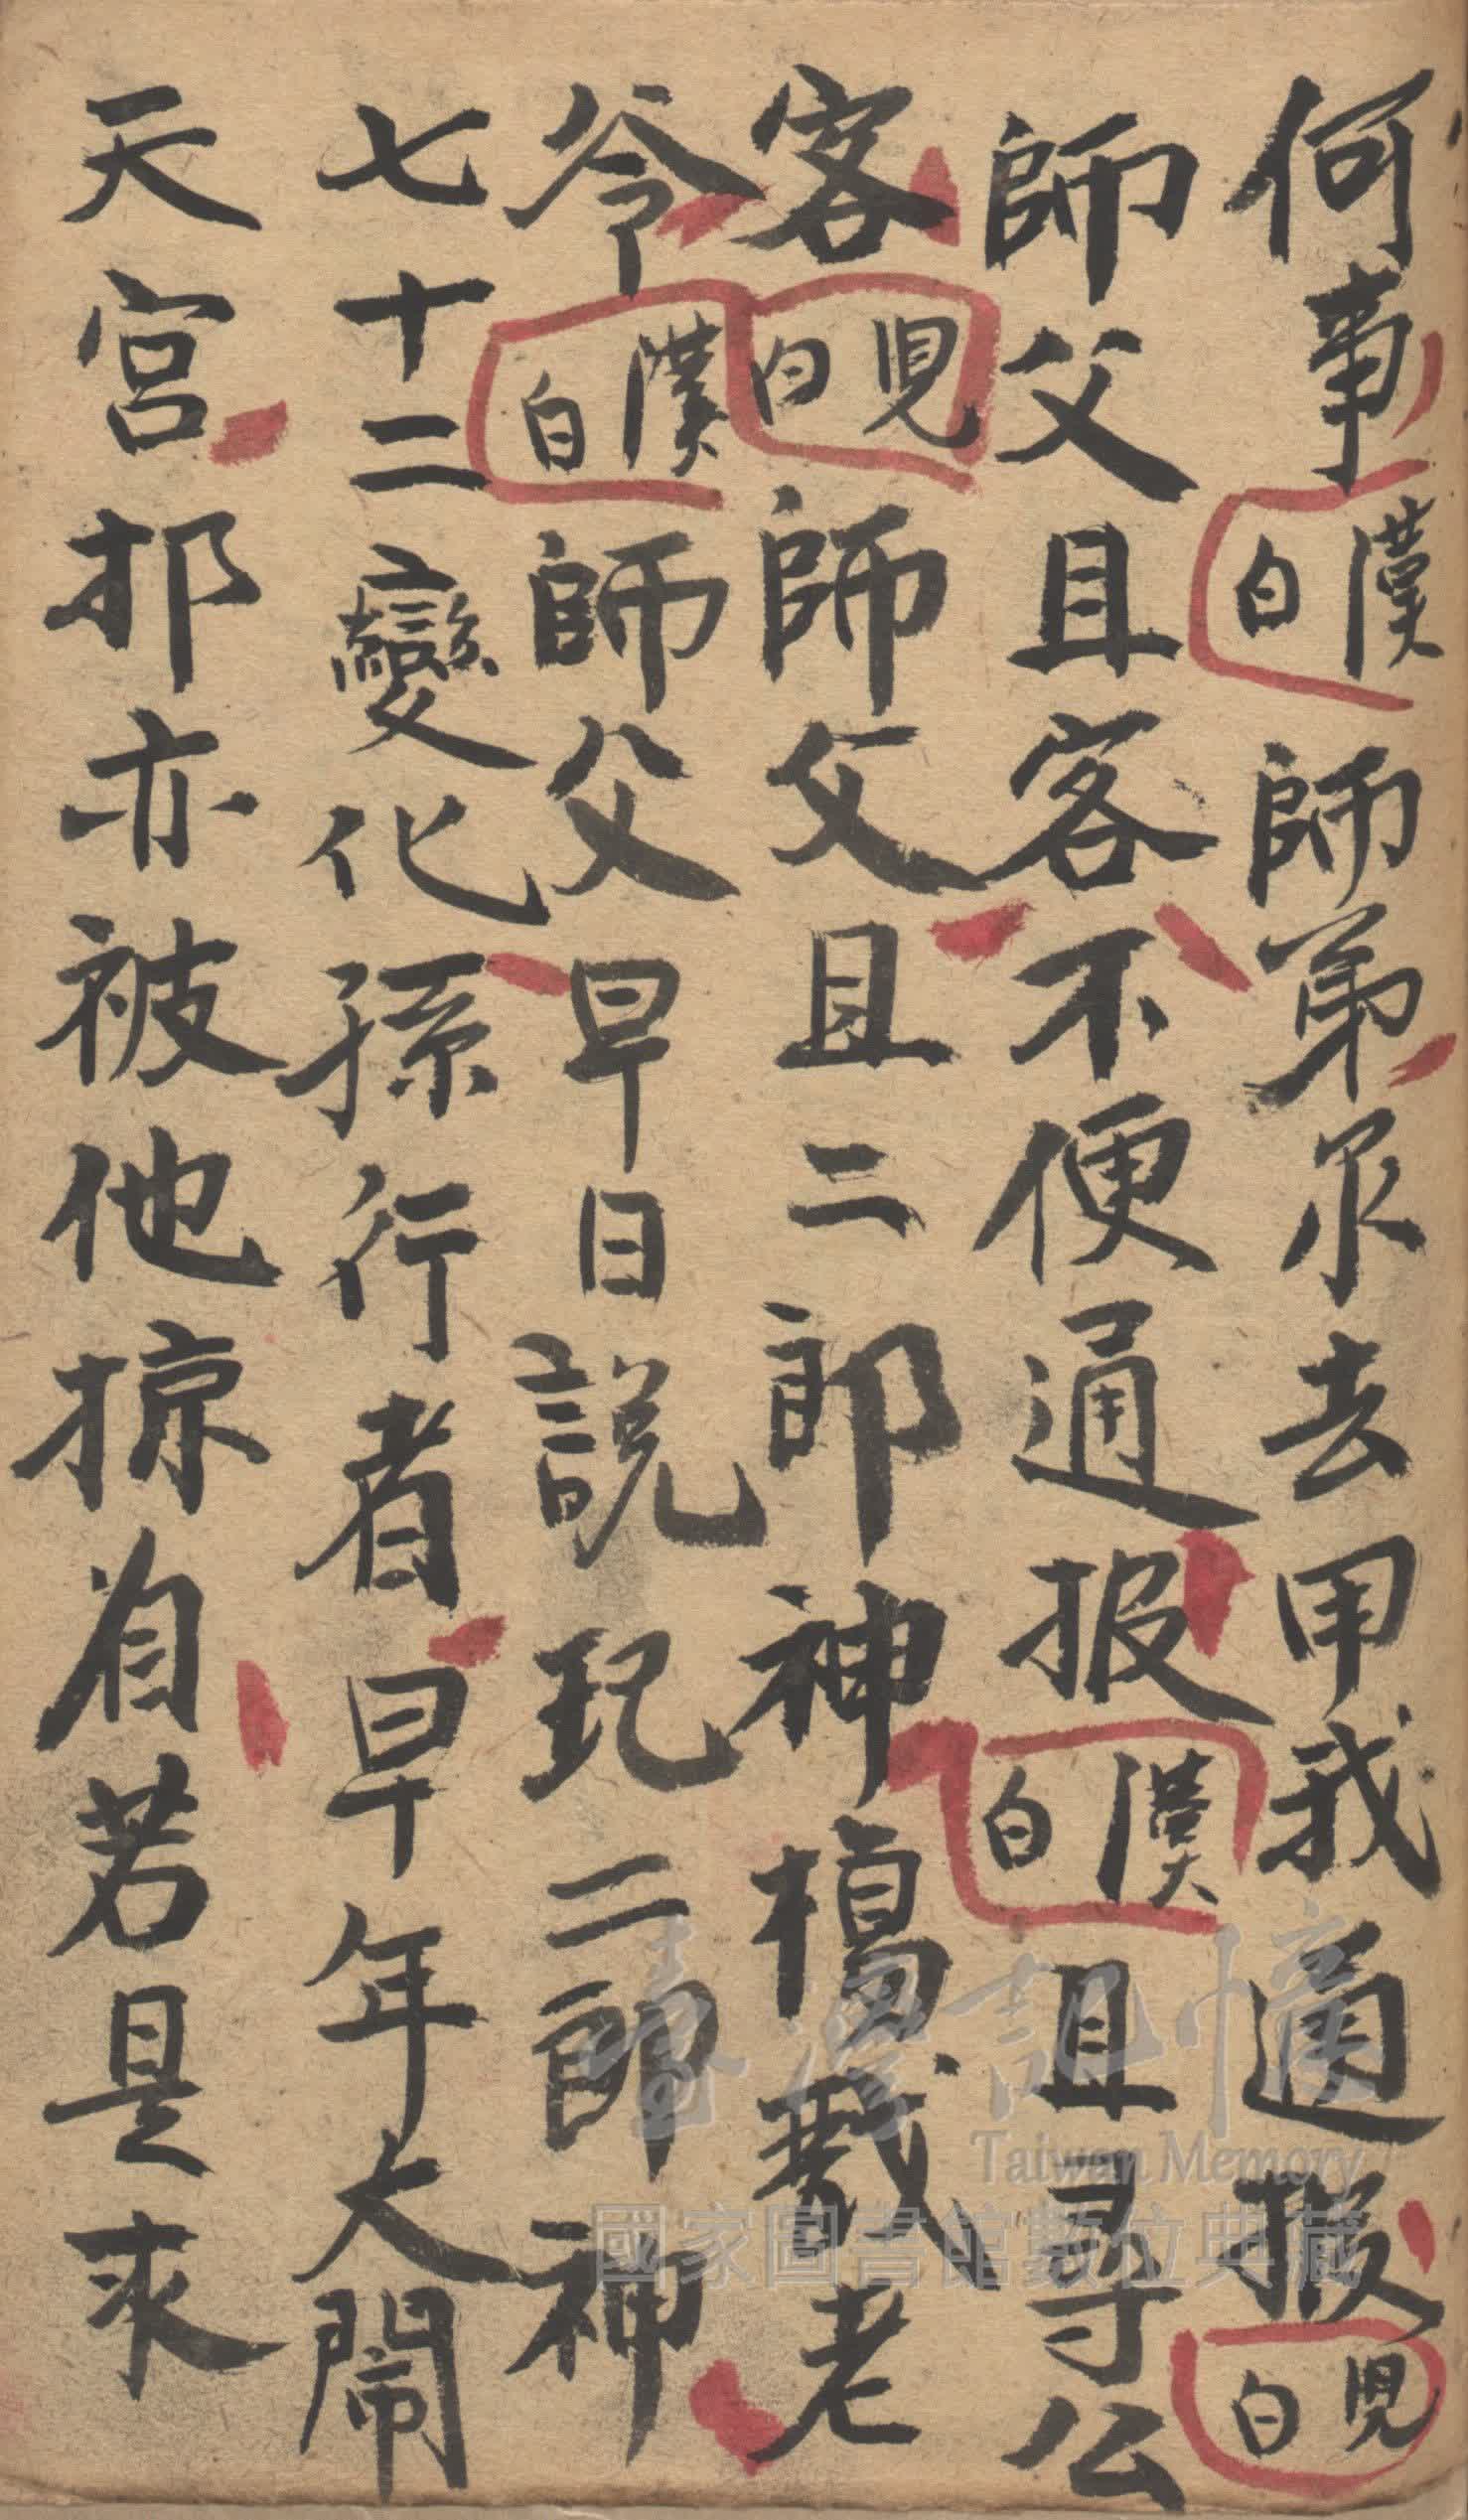 何事漢白師弟尔去甲我通报児白
師父且客不便通报漢白且尋公
客児白師父且二郎神楊戩老
爷漢白師父早日説玘二郎神
七十二變化孫行者早年大鬧
天宮亦被他掠若是来
臺灣記憶
Taiwan Memory
國家圖書館數位典藏